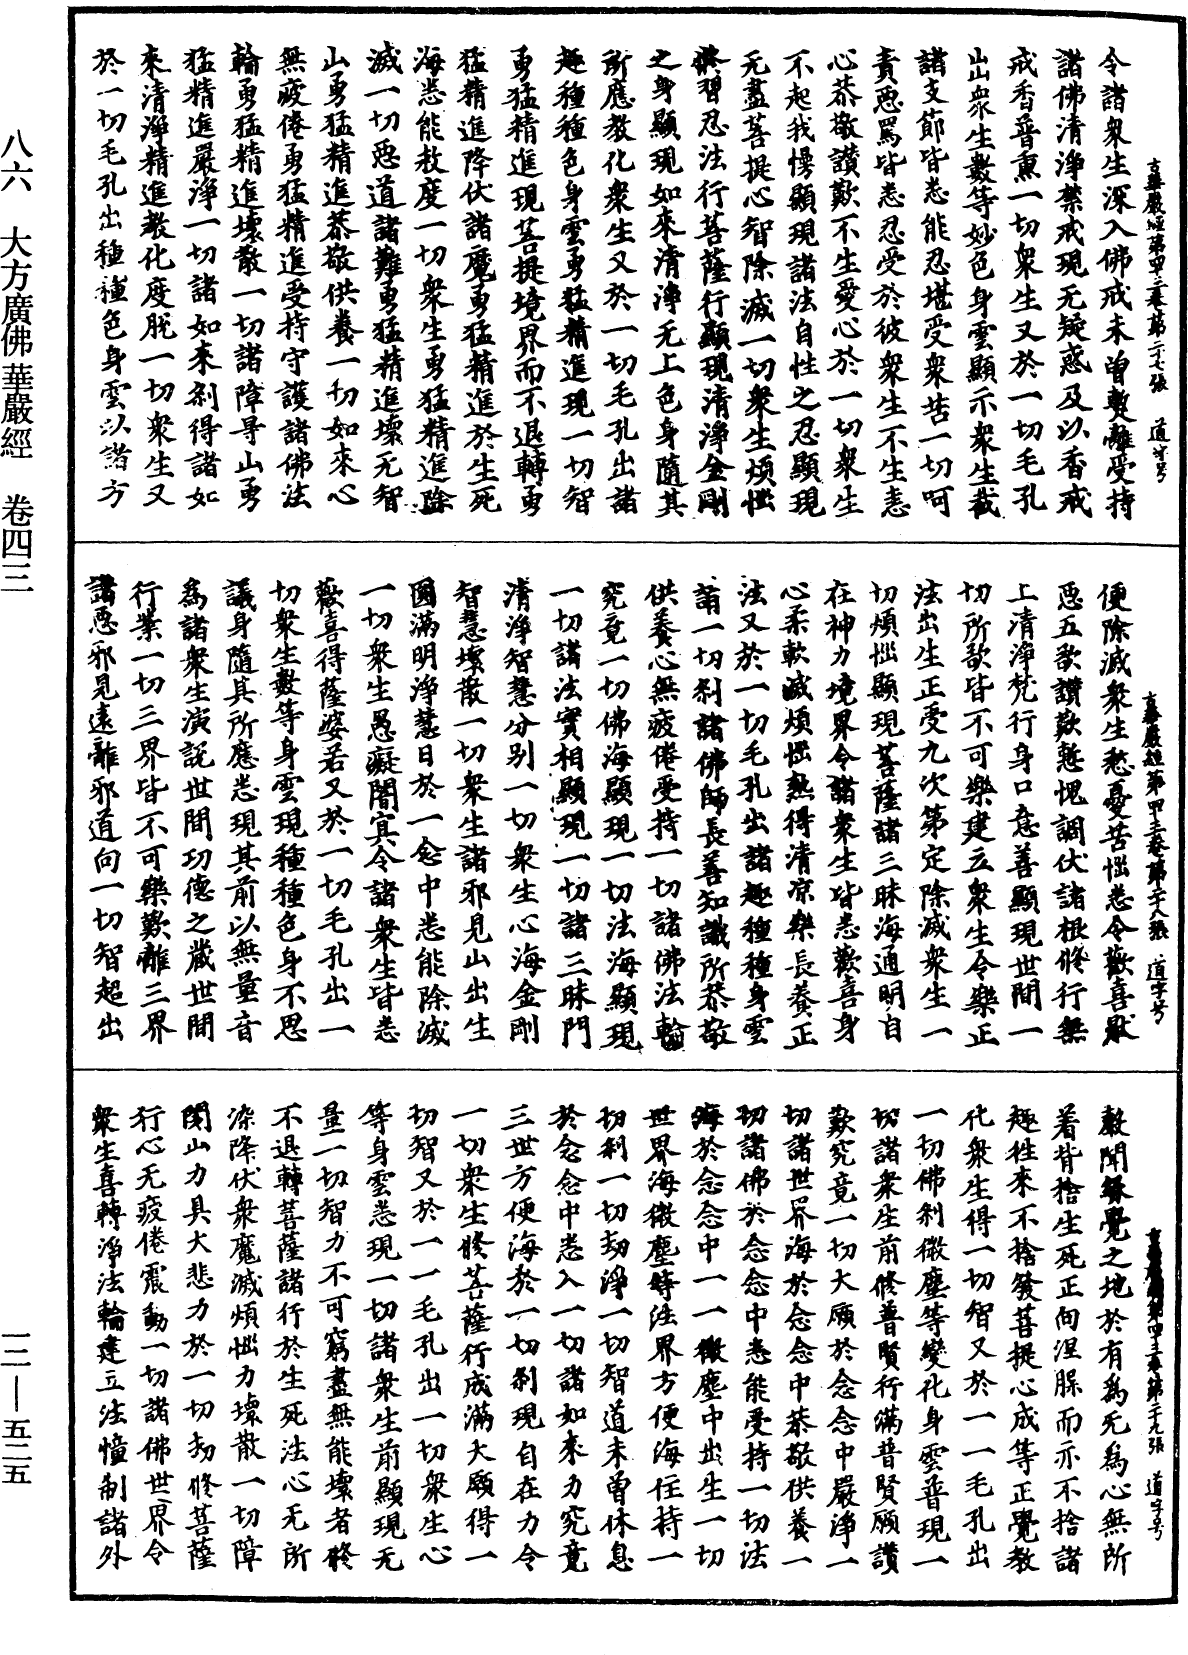 古華嚴經第四三卷第二十七張 道字号
令諸衆生深入佛戒未曾暫離受持
諸佛清淨禁戒現无疑惑及以香戒
戒香普熏一切衆生又於一切毛孔
出出衆生數等妙色身雲顯示衆生截
諸支節皆悉能忍堪受衆苦一切呵
責惡罵皆悉忍受於彼衆生不生恚
心恭敬讃歎不生愛心於一切衆生
不起我慢顯現諸法自性之忍顯現
无盡菩提心智除滅一切衆生煩惱
修習忍法行菩薩行顯現清淨金剛
之身顯現如來清淨无上色身隨其
所應教化衆生又於一切毛孔出諸
趣種種色身雲勇猛精進現一切智
勇猛精進現菩提境界而不退轉勇
猛精進降伏諸魔勇猛精進於生死
海悉能救度一切衆生勇猛精進除
滅一切惡道諸難勇猛精進壞无智
山勇猛精進恭敬供養一切如來心
無疲倦勇猛精進受持守護諸佛法
輪勇猛精進壞散一切諸障㝵山勇
猛精進嚴淨一切諸如來剎得諸如
來清淨精進教化度脫一切衆生又
於一切毛孔出種種色身雲以諸方
古華嚴經第四三卷第二十八張 道字号
便除滅衆生愁憂苦惱悉令歡喜猒
惡五欲讃歎慙愧調伏諸根修行無
上清淨梵行身口意善顯現世間一
切所欲皆不可樂建立衆生令樂正
法出生正受九次第定除滅衆生一
切煩惱顯現菩薩諸三昧海通明自
在神力境界令諸衆生皆悉歡喜身
心柔軟滅煩惱熱得清凉樂長養正
法又於一切毛孔出諸趣種種身雲
詣一切剎諸佛師長善知識所恭敬
供養心無疲倦受持一切諸佛法輪
究竟一切佛海顯現一切法海顯現
一切諸法實相顯現一切諸三昧門
清淨智慧分別一切衆生心海金剛
智慧壞散一切衆生諸邪見山出生
圓滿明淨慧日於一念中悉能除滅
一切衆生愚癡闇冥令諸衆生皆悉
歡喜得薩婆若又於一切毛孔出一
切衆生數等身雲現種種色身不思
議身隨其所應悉現其前以無量音
為諸衆生演說世間功德之藏世間
行業一切三界皆不可樂歎離三界
諸惡邪見遠離邪道向一切智超出
古華嚴經第四三卷第二十九張 道字号
聲聞緣覺之地於有為无為心無所
着背捨生死正向涅槃而亦不捨諸
趣徃來不捨發菩提心成等正覺教
化衆生得一切智又於一一毛孔出
一切佛剎微塵等變化身雲普現一
切諸衆生前修普賢行滿普賢願讃
歎究竟一切大願於念念中嚴淨一
切諸世界海於念念中恭敬供養一
切諸佛於念念中悉能受持一切法
海於念念中一一微塵中出生一切
世界海微塵等法界方便海住持一
切剎一切劫淨一切智道未曾休息
於念念中悉入一切諸如來力究竟
三世方便海於一切剎現自在力令
一切衆生修菩薩行成滿大願得一
切智又於一一毛孔出一切衆生心
等身雲悉現一切諸衆生前顯現无
量一切智力不可窮盡無能壞者修
不退轉菩薩諸行於生死法心无所
染降伏衆魔滅煩惱力壞散一切障
閡山力具大悲力於一切劫修菩薩
行心无疲倦震動一切諸佛世界令
衆生喜轉淨法輪建立法憧制諸外
八六 大方廣佛華嚴經 卷四三
一二—五二五